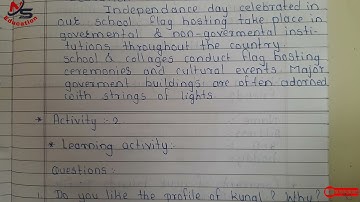 NS
Education
Independance day celebrated in
our school flag hosting take place in
govermental & non-govermental insti-
tutions throughout the country
school & collages conduct flag hosting
ceremonies and cultural events Major
goverment buildings are often adorned
with strings of lights
* Activity :- 2
* Learning activity:-
Questions :-
Do you like the profile of kunal ? Why?